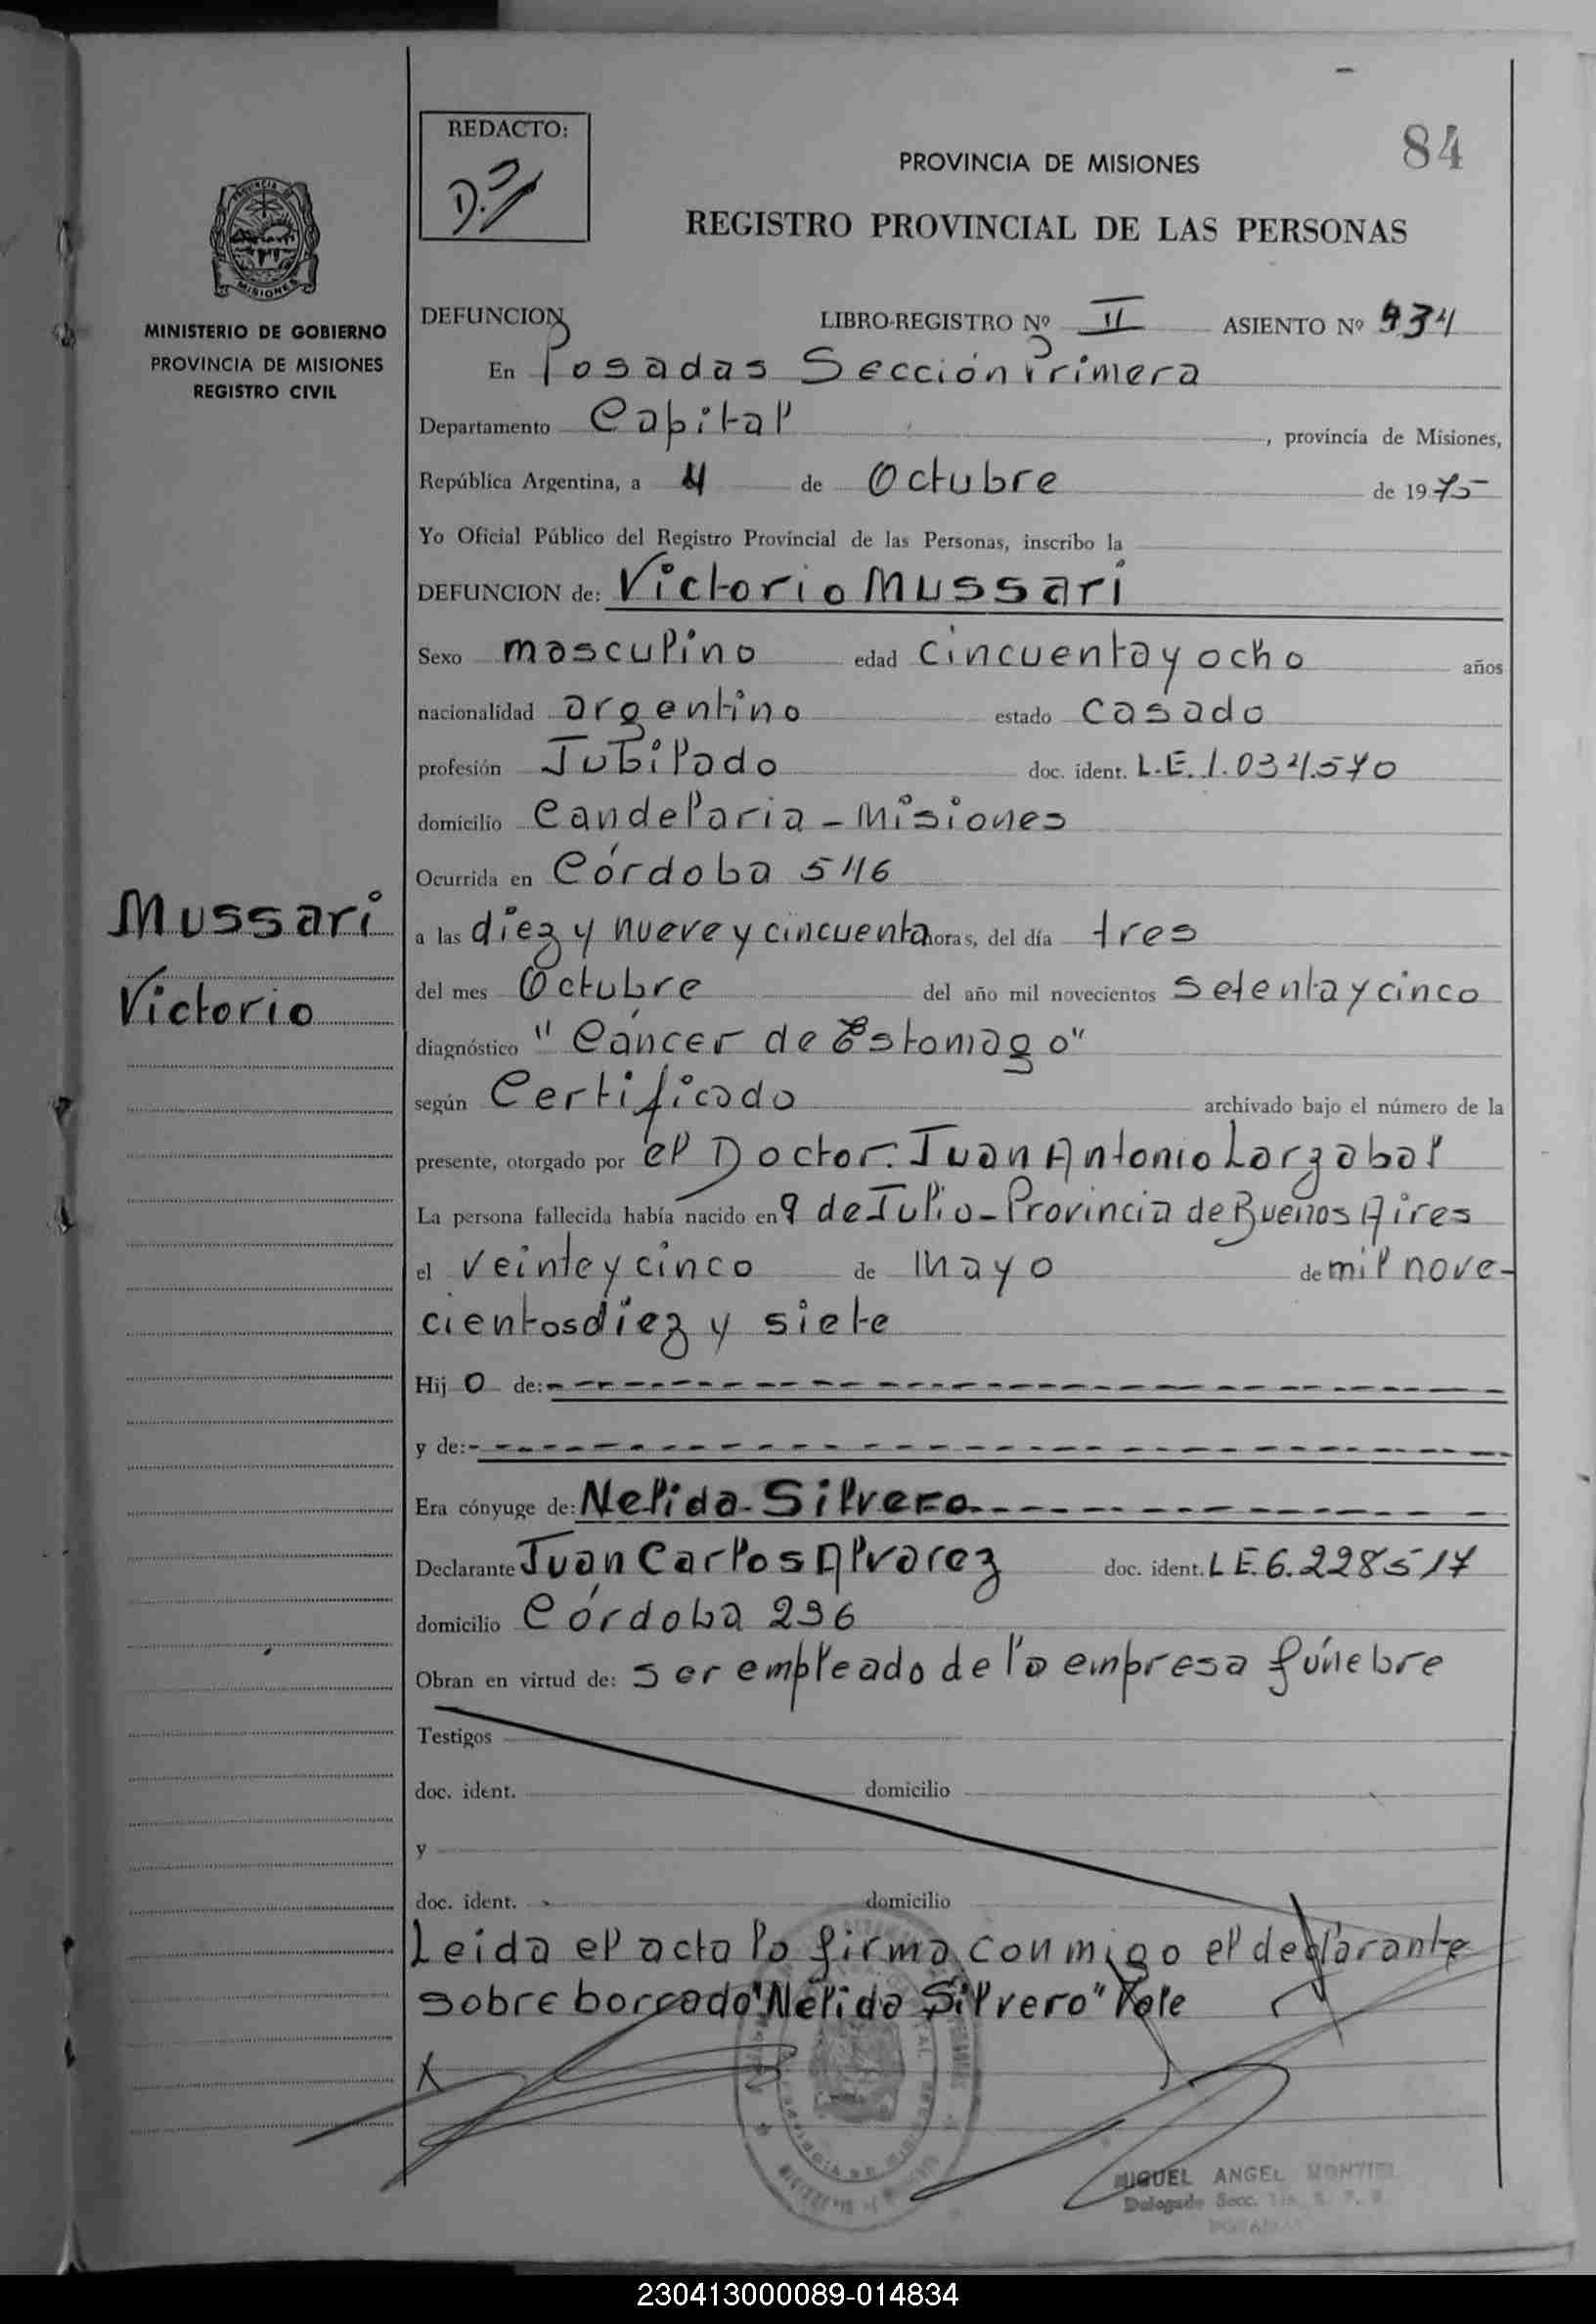 84
REDACTO:
PROVINCIA DE MISIONES
REGISTRO PROVINCIAL DE LAS PERSONAS
MISIONES
MINISTERIO DE GOBIERNO
PROVINCIA DE MISIONES
REGISTRO CIVIL
DEFUNCION LIBRO-REGISTRO Nº II ASIENTO Nº 934
En Posadas Sección Primera
Departamento Capital, provincia de Misiones,
República Argentina, a 4 de Octubre de 1975
Yo Oficial Público del Registro Provincial de las Personas, inscribo la
DEFUNCION de: Victorio Mussari
Sexo masculino edad cincuenta y ocho años
nacionalidad argentino estado casado
profesión Jubilado doc. ident. L.E. 1.034.570
domicilio Candelaria - Misiones
Ocurrida en Córdoba 546
Mussari
Victorio
a las diez y nueve y cincuenta horas, del día tres
del mes Octubre del año mil novecientos setenta y cinco
diagnóstico "Cáncer de Estomago"
según Certificado archivado bajo el número de la
presente, otorgado por el Doctor. Juan Antonio Larzabal
La persona fallecida había nacido en 9 de Julio - Provincia de Buenos Aires
el veinte y cinco de mayo de mil nove-
cientos diez y siete
Hijo de:
y de:
Era cónyuge de: Nelida Silvero
Declarante Juan Carlos Alvarez doc. ident. L E. 6.228517
domicilio Córdoba 296
Obran en virtud de: ser empleado de la empresa fúnebre
Testigos
doc. ident. domicilio
y
doc. ident. domicilio
Leida el acta la firma conmigo el declarante
sobre borrado "Nelida Silvero" Vale
X
MIGUEL ANGEL MONTIEL
Delegado Secc.
230413000089-014834